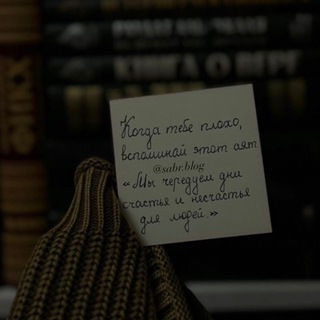 КНИГА О ВЕРЕ
ФИКХ
Когда тебе плохо,
вспоминай этот аят
@sabr.blog
«Мы чередуем дни
счастья и несчастья
для людей.»